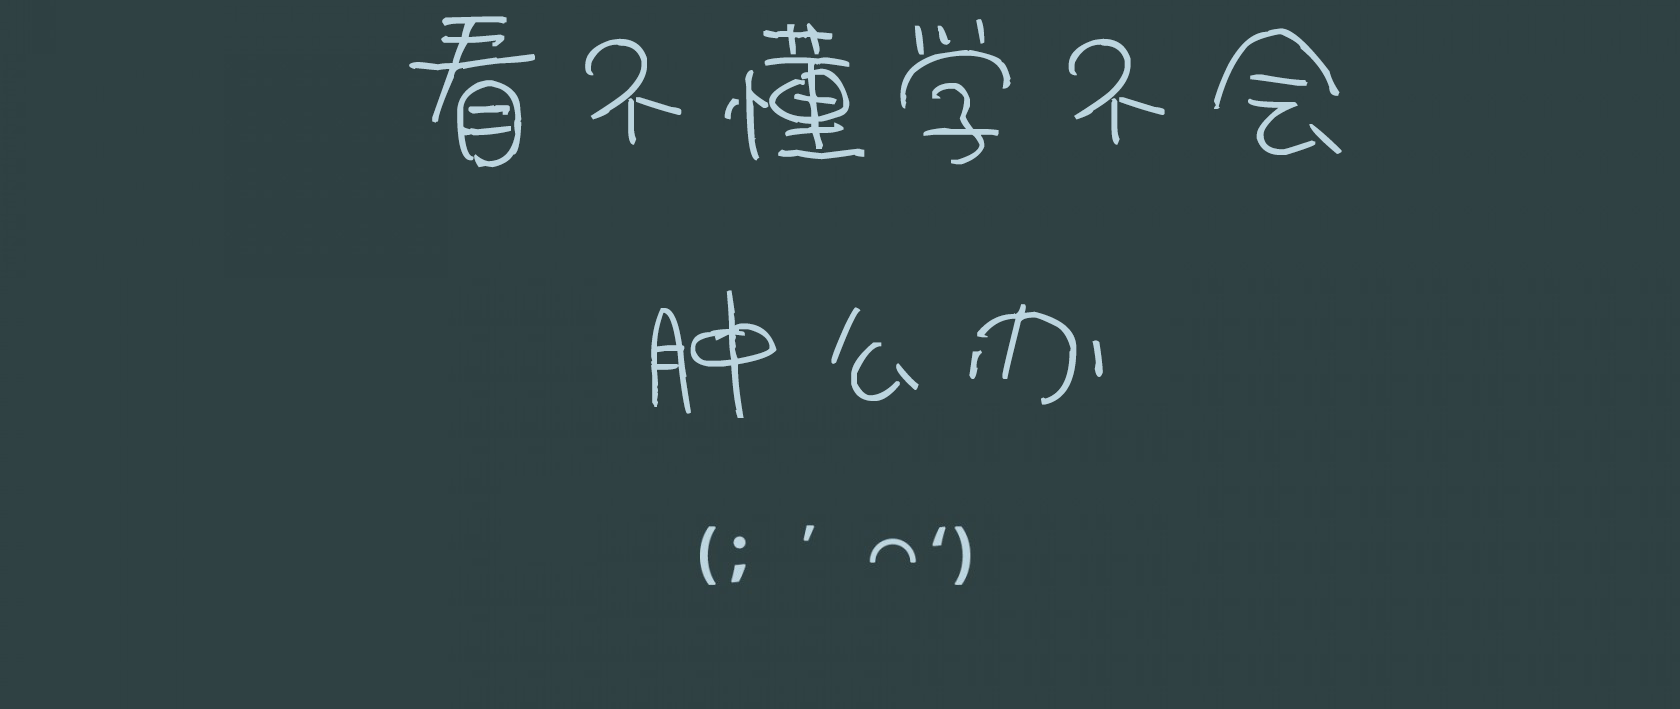 看不懂学不会
肿么办
(; ′ ⌒‘)